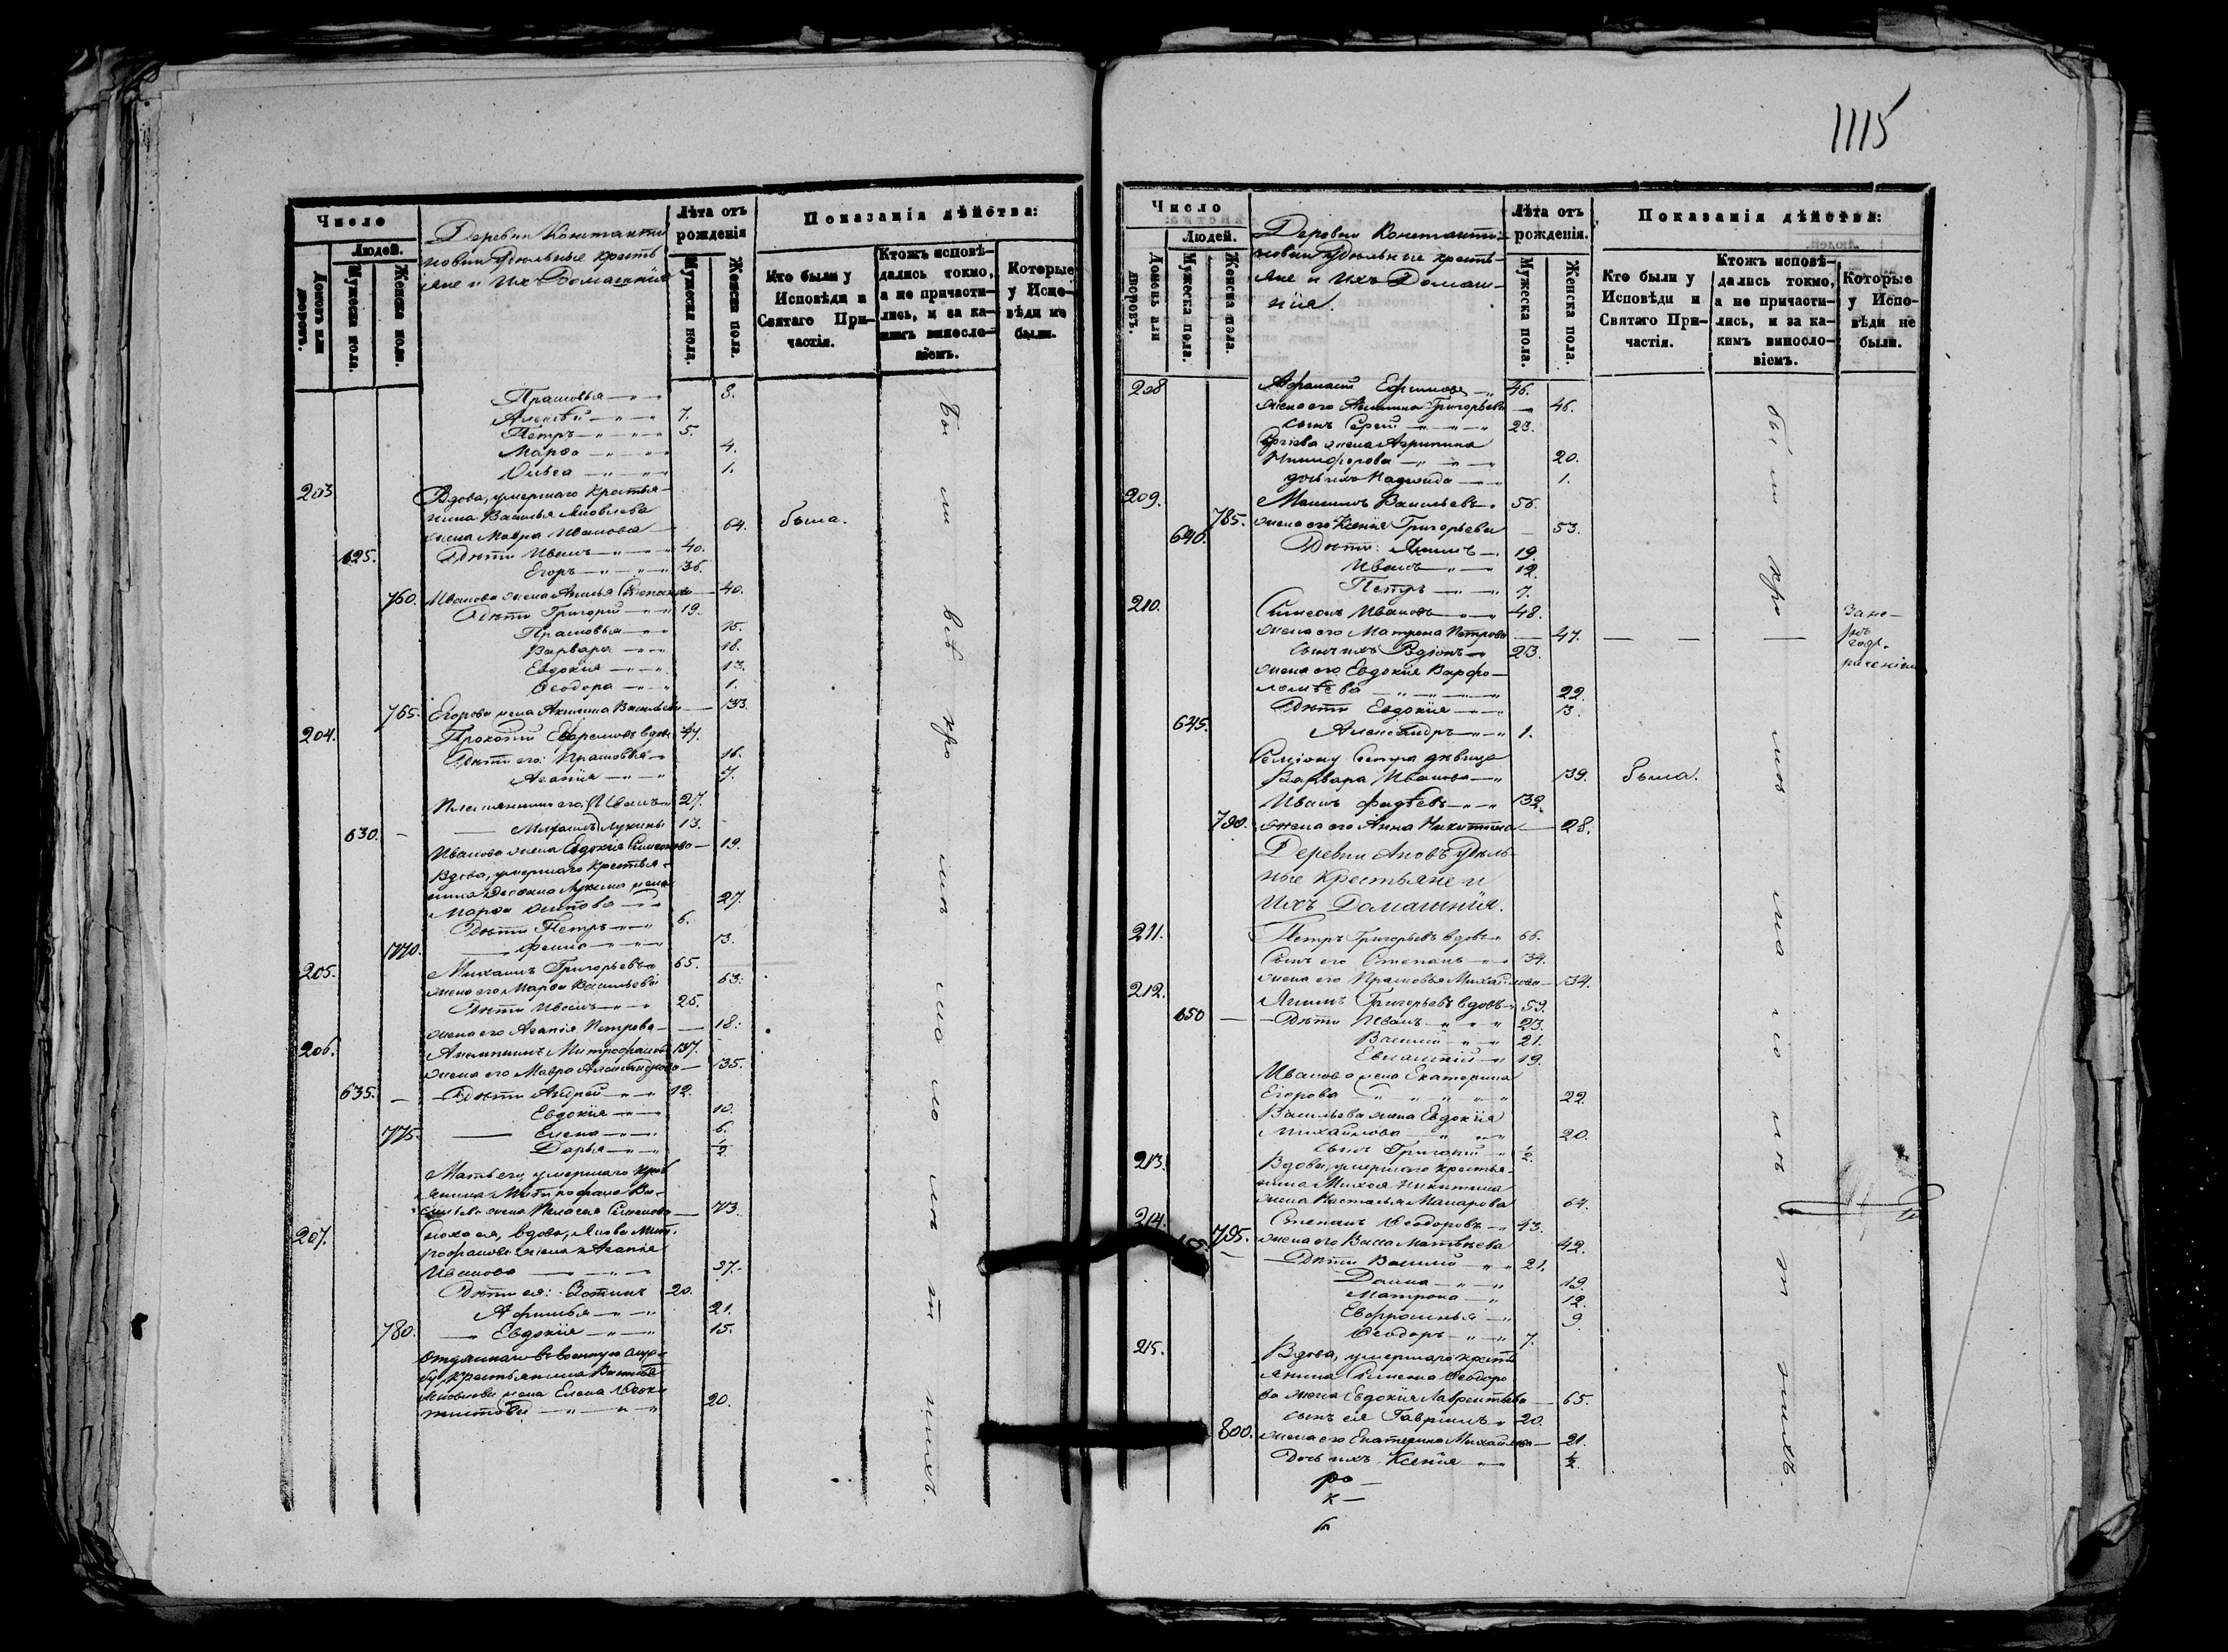 Число
Людей.
Домовъ или дворовъ.
Мужеска пола.
Женска пола.
Деревни Константи
новки Удѣльные кресть
яне и Ихъ Домашнія
Лѣта отъ рожденія
Мужеска пола.
Женска пола.
Показанія дѣйства:
Кто были у Исповѣди и Святаго При-
частія.
Ктожъ исповѣ-
дались токмо,
а не причасти-
лись, и за ка-
кимъ виносло-
віемъ.
Которые
у Испо-
вѣди не
были.
Прасковья 8.
Алексѣй 7.
Петръ 5.
Марѳа 4.
Ольга 1.
203 Вдова, умершаго крестья-
нина Василья Яковлева
жена Мавра Иванова 64. была.
625. Дѣти Иванъ 40.
Егоръ 36.
760. Иванова жена Степанова 40.
Дѣти Григорій 19.
Прасковья 15.
Варвара 18.
Евдокія 13.
Ѳеодора 1.
765. Егорова жена Акилина Васильева 33.
204. Прокопій Евдовъ 47.
Дѣти его: Прасковья 16.
Агапія 7.
Племянники его Иванъ 27.
630. Михаилъ Лукины 13.
Иванова жена Евдокія Симеонова 19.
Вдова, умершаго крестья-
нина Лукина жена
Марѳа Осипова 27.
Дѣти Петръ 6.
770. 3.
205. Михаилъ Григорьевъ 65.
жена его Марѳа Васильева 63.
Дѣти Иванъ 25.
жена его Агапія Петрова 18.
206. Митрофановъ 37.
жена его Мавра Александрова 35.
635. Дѣти Андрей 12.
Евдокія 10.
775. Елена 6.
Дарья ½
Мать его, умершаго крес
янина Митрофана Ва-
сильева жена Пелагея Семенова 73.
207. Сноха ея, вдова, Якова Мит.
рофанова жена Агапія
Иванова 37.
Дѣти ея: Зотикъ 20.
Афимья 21.
780. Евдокія 15.
Отданнаго въ военную служ
бу крестьянина
Яковлева жена Елена
20.
1115
Число
Людей.
Домовъ или дворовъ.
Мужеска пола.
Женска пола.
Деревни Константи-
новки Удѣльные кресть-
яне и Ихъ Домаш-
нія.
Лѣта отъ рожденія.
Мужеска пола.
Женска пола.
Показанія дѣйства:
Кто были у
Исповѣди и
Святаго При-
частія.
Ктожъ исповѣ-
дались токмо,
а не причасти-
лись, и за ка-
кимъ виносло-
віемъ.
Которые
у Испо-
вѣди не
были.
208 Афанасій Ефимовъ 46.
жена его Григорьева 46.
сынъ Сергѣй 23.
Сергѣева жена Агрипина
Никифорова 20.
дочь ихъ Надежда 1.
209. Максимъ Васильевъ 56.
785. жена его Ксенія Григорьева 53.
640. Дѣти: Якимъ 19.
Иванъ 12.
Петръ 7.
210. Симеонъ Ивановъ 48.
жена его Матрона Петрова 47.
сынъ ихъ Родіонъ 23.
жена его Евдокія Варфо-
ломѣева 22.
Дѣти Евдокія 3.
645. Александръ 1.
Сестра дѣвица
Варвара Иванова 39. была.
Иванъ Фадѣевъ 32.
790. жена его Анна Никитина 28.
Деревни Удѣль-
ные Крестьяне и
Ихъ Домашнія.
211. Петръ Григорьевъ вдовъ 66.
Сынъ его Степанъ 34.
жена его Прасковья Михайлова 34.
212. Якимъ Григорьевъ вдовъ 59.
650 Дѣти Иванъ 23.
Василій 21.
19.
Иванова жена Екатерина
Егорова 22.
Васильева жена Евдокія
Михайлова 20.
сынъ Григорій ½
213. Вдова, умершаго крестья-
нина Никитина
жена Наталья Макарова 64.
214. Степанъ Ѳеодоровъ 43.
795. жена его Васса Матвѣева 42.
Дѣти Василій 21.
19.
Матрона 12.
Евфросинья 9
Ѳеодоръ 7.
215. Вдова, умершаго кресть
янина Семена Ѳеодоро
ва жена Евдокія Лаврентьева 65.
сынъ ея Гавріилъ 20.
800. жена его Екатерина Михайлова 21.
Дочь ихъ Ксенія ½